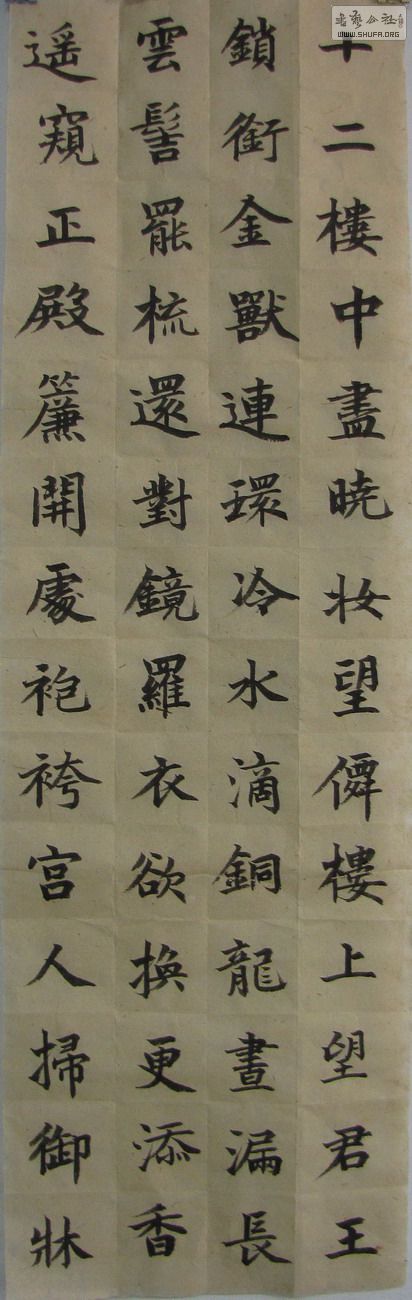 十二樓中盡曉妝望僊樓上望君王
鎖銜金獸連環冷水滴銅龍晝漏長
雲髻罷梳還對鏡羅衣欲換更添香
遥窺正殿簾開處袍袴宮人掃御牀
書藝公社
WWW.SHUFA.ORG